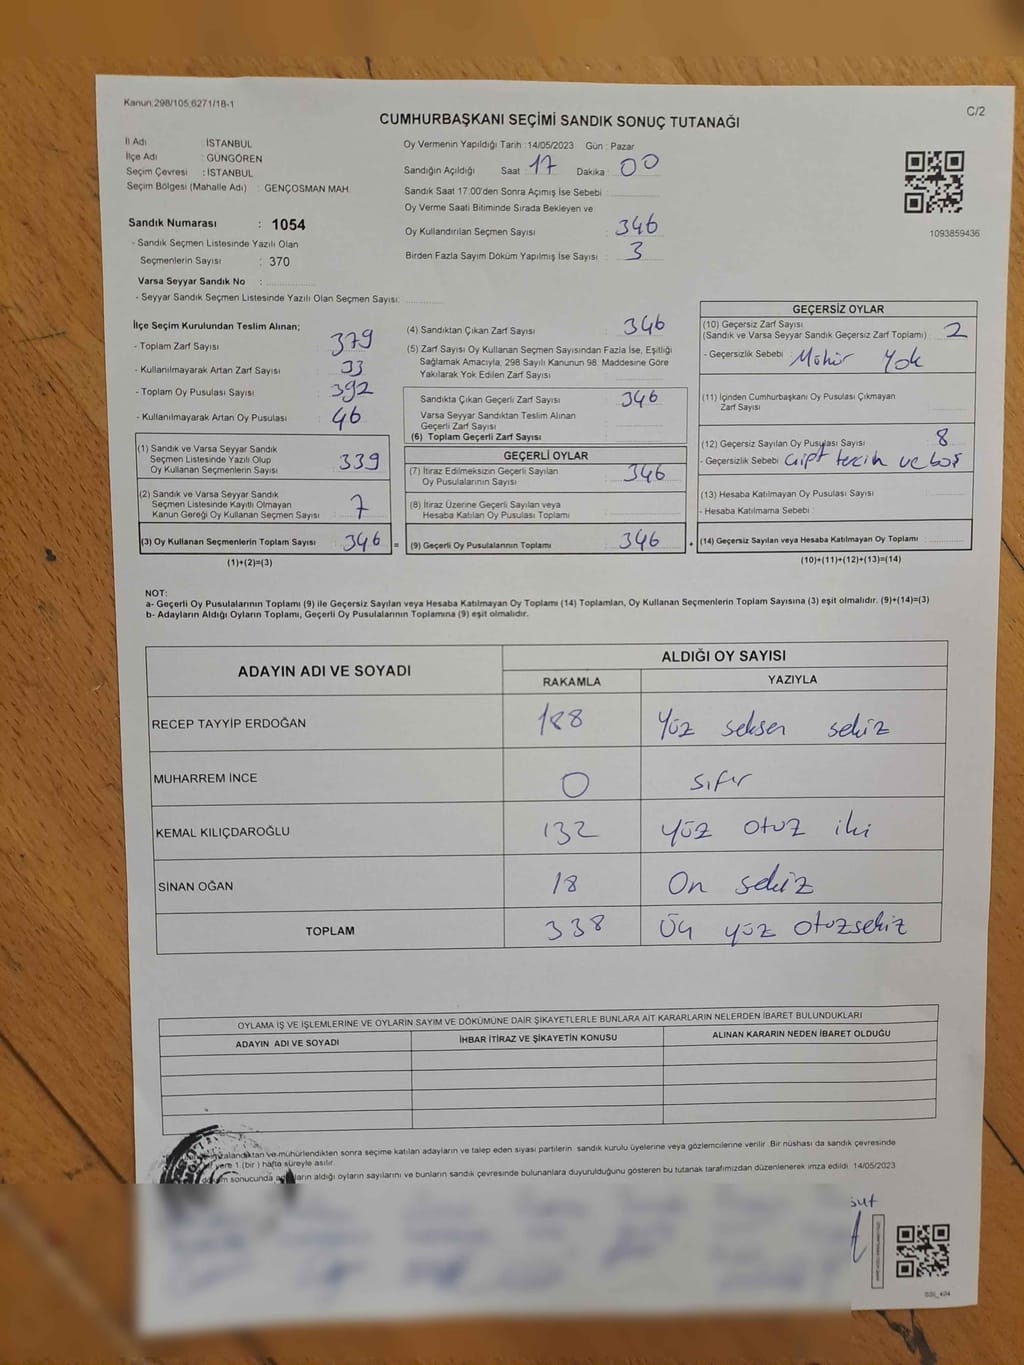 Kanun:298/105,6271/18-1
C/2
CUMHURBAŞKANI SEÇİMİ SANDIK SONUÇ TUTANAĞI
İl Adı İSTANBUL
İlçe Adı : GÜNGÖREN
Seçim Çevresi : İSTANBUL
Seçim Bölgesi (Mahalle Adı) : GENÇOSMAN MAH.
Sandık Numarası : 1054
- Sandık Seçmen Listesinde Yazılı Olan
Seçmenlerin Sayısı : 370
Varsa Seyyar Sandık No :
- Seyyar Sandık Seçmen Listesinde Yazılı Olan Seçmen Sayısı:
Oy Vermenin Yapıldığı Tarih :14/05/2023 Gün : Pazar
Sandığın Açıldığı Saat : 17 Dakika : 00
Sandık Saat 17:00'den Sonra Açımış İse Sebebi :
Oy Verme Saati Bitiminde Sırada Bekleyen ve
Oy Kullandırılan Seçmen Sayısı : 346
Birden Fazla Sayım Döküm Yapılmış İse Sayısı : 3
1093859436
İlçe Seçim Kurulundan Teslim Alınan;
- Toplam Zarf Sayısı : 379
- Kullanılmayarak Artan Zarf Sayısı : 33
- Toplam Oy Pusulası Sayısı : 392
- Kullanılmayarak Artan Oy Pusulası : 46
(1) Sandık ve Varsa Seyyar Sandık
Seçmen Listesinde Yazılı Olup
Oy Kullanan Seçmenlerin Sayısı : 339
(2) Sandık ve Varsa Seyyar Sandık
Seçmen Listesinde Kayıtlı Olmayan
Kanun Gereği Oy Kullanan Seçmen Sayısı : 7
(3) Oy Kullanan Seçmenlerin Toplam Sayısı : 346 =
(1)+(2)=(3)
(4) Sandıktan Çıkan Zarf Sayısı : 346
(5) Zarf Sayısı Oy Kullanan Seçmen Sayısından Fazla İse, Eşitliği
Sağlamak Amacıyla; 298 Sayılı Kanunun 98. Maddesine Göre
Yakılarak Yok Edilen Zarf Sayısı :
Sandıkta Çıkan Geçerli Zarf Sayısı : 346
Varsa Seyyar Sandıktan Teslim Alınan
Geçerli Zarf Sayısı :
(6) Toplam Geçerli Zarf Sayısı :
GEÇERLİ OYLAR
(7) İtiraz Edilmeksizin Geçerli Sayılan
Oy Pusulalarının Sayısı : 346
(8) İtiraz Üzerine Geçerli Sayılan veya
Hesaba Katılan Oy Pusulası Toplamı :
(9) Geçerli Oy Pusulalarının Toplamı : 346 +
GEÇERSİZ OYLAR
(10) Geçersiz Zarf Sayısı
(Sandık ve Varsa Seyyar Sandık Geçersiz Zarf Toplamı) : 2
- Geçersizlik Sebebi : Mühür Yok
(11) İçinden Cumhurbaşkanı Oy Pusulası Çıkmayan
Zarf Sayısı :
(12) Geçersiz Sayılan Oy Pusulası Sayısı : 8
- Geçersizlik Sebebi : Çift tercih ve boş
(13) Hesaba Katılmayan Oy Pusulası Sayısı :
- Hesaba Katılmama Sebebi :
(14) Geçersiz Sayılan veya Hesaba Katılmayan Oy Toplamı :
(10)+(11)+(12)+(13)=(14)
NOT:
a- Geçerli Oy Pusulalarının Toplamı (9) ile Geçersiz Sayılan veya Hesaba Katılmayan Oy Toplamı (14) Toplamları, Oy Kullanan Seçmenlerin Toplam Sayısına (3) eşit olmalıdır. (9)+(14)=(3)
b- Adayların Aldığı Oyların Toplamı, Geçerli Oy Pusulalarının Toplamına (9) eşit olmalıdır.
ADAYIN ADI VE SOYADI ALDIĞI OY SAYISI
RAKAMLA YAZIYLA
RECEP TAYYİP ERDOĞAN 188 Yüz seksen sekiz
MUHARREM İNCE 0 sıfır
KEMAL KILIÇDAROĞLU 132 yüz otuz iki
SİNAN OĞAN 18 On sekiz
TOPLAM 338 Üç yüz otuzsekiz
OYLAMA İŞ VE İŞLEMLERİNE VE OYLARIN SAYIM VE DÖKÜMÜNE DAİR ŞİKAYETLERLE BUNLARA AİT KARARLARIN NELERDEN İBARET BULUNDUKLARI
ADAYIN ADI VE SOYADI İHBAR İTİRAZ VE ŞİKAYETİN KONUSU ALINAN KARARIN NEDEN İBARET OLDUĞU
mühürlendikten sonra seçime katılan adayların ve talep eden siyasi partilerin sandık kurulu üyelerine veya gözlemcilerine verilir. Bir nüshası da sandık çevresinde
yere 1 (bir) hafta süreyle asılır.
döküm sonucunda aldığı oyların sayılarını ve bunların sandık çevresinde bulunanlara duyurulduğunu gösteren bu tutanak tarafımızdan düzenlenerek imza edildi. 14/05/2023